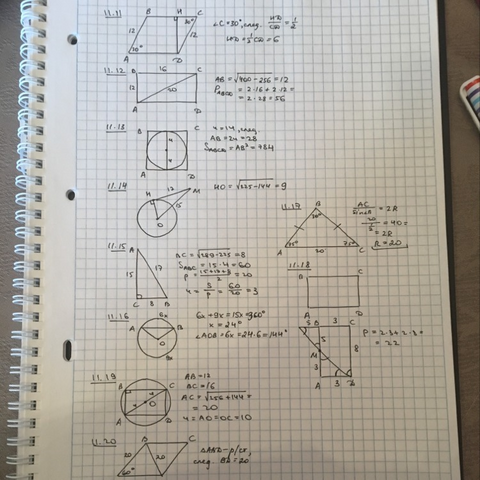 11.11
B H C
4 30°
12 12
30°
A D
∠C=30°, след. HD/CD = 1/2
HD = 1/2 CD = 6
11.12
B 16 C
12 20
A D
AB = √400-256 = 12
P_ABCD = 2·16+2·12=
= 2·28 = 56
11.13
B C
4
4
A D
r=14, след
AB = 28
S_ABCD = AB² = 784
11.14
H 12 M
15
O
HO = √225-144 = 9
11.15
A
15 17
C 8 B
BC = √289-225 = 8
S_ABC = 15·4 = 60
P = (15+17+8)/2 = 20
r = S/P = 60/20 = 3
11.16
6x
A B
O
8x
6x+9x=15x=360°
x = 24°
∠AOB=6x=24·6=144°
11.17
B
30°
A 75° 75° C
20
AC/sin∠B = 2R
= 40 =
= 2R
R = 20
11.18
B C
A D
B 3 C
5
M 8
3
A 3 D
P = 2·3+2·8=
= 22
11.19
B C
O
A D
AB=12
BC=16
AC = √256+144 =
= 20
r = AO = OC = 10
11.20
B C
20 20
60°
△ABD - р/ст,
след. BD = 20